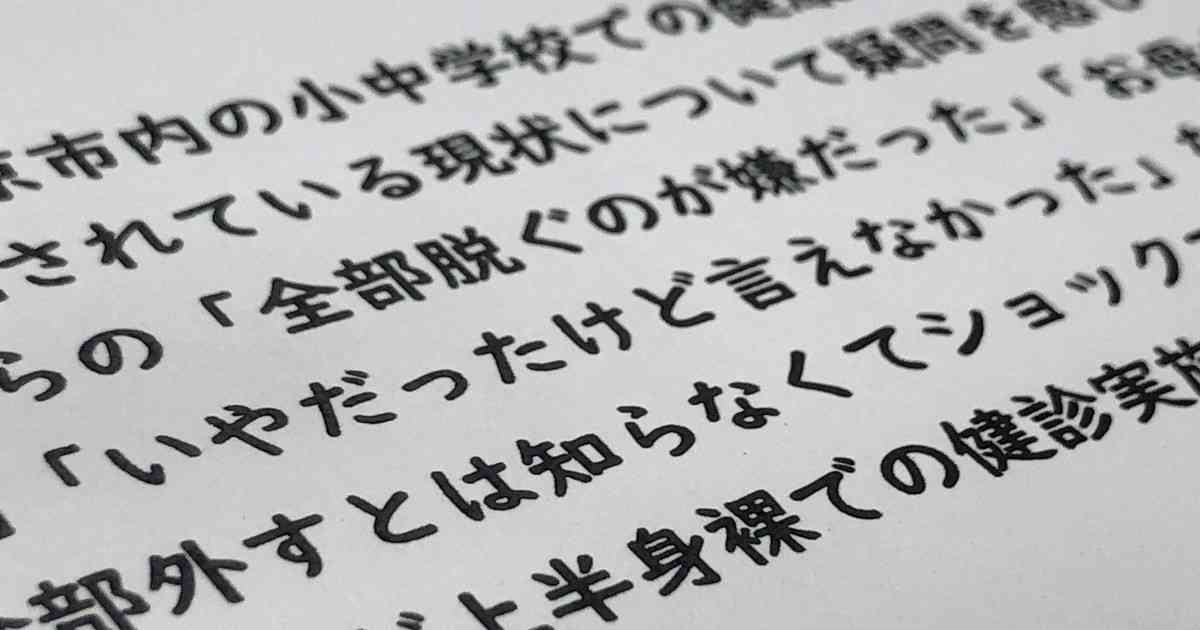 市内の小中学校での健
されている現状について疑問を感じ
らの「全部脱ぐのが嫌だった」「お母
「いやだったけど言えなかった」
部外すとは知らなくてショック
上半身裸での健診実施